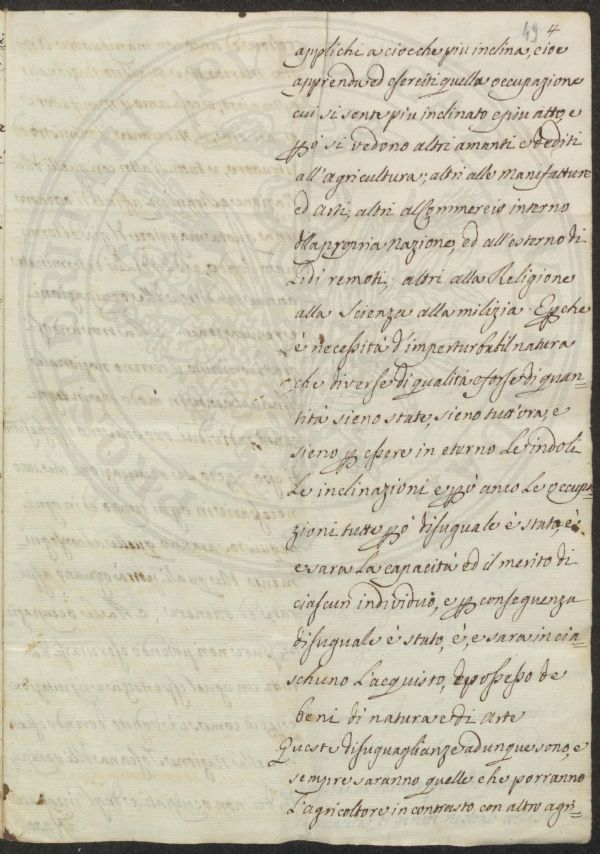 49 4
applichi a ciocche piu inclina, cioe
apprenda ed eserciti quella occupazione
cui si sente piu inclinato e piu atto, e
però si vedono altri amanti e dediti
all'agricultura, altri alle manifatture
ed Arti, altri al Commercio interno
della propria Nazione, ed all'esterno di
Lidi remoti, altri alla Religione
alla Scienza alla milizia. E perche
è necessità d'imperturbabil natura
che diverse di qualità e forse di quan=
tità sieno state, sieno tutt'ora, e
sieno per essere in eterno Le indoli
Le inclinazioni e però anco Le occupa=
zioni tutte però disuguale è stata, è
e sarà La capacità ed il merito di
ciascun individuo, e per conseguenza
disuguale è stato, è, e sara in cia=
schuno L'acquisto, e possesso de
beni di natura e di Arte
Queste disuguaglianze adunque sono, e
sempre saranno quelle che porranno
L'agricoltore in contrasto con altro agri=